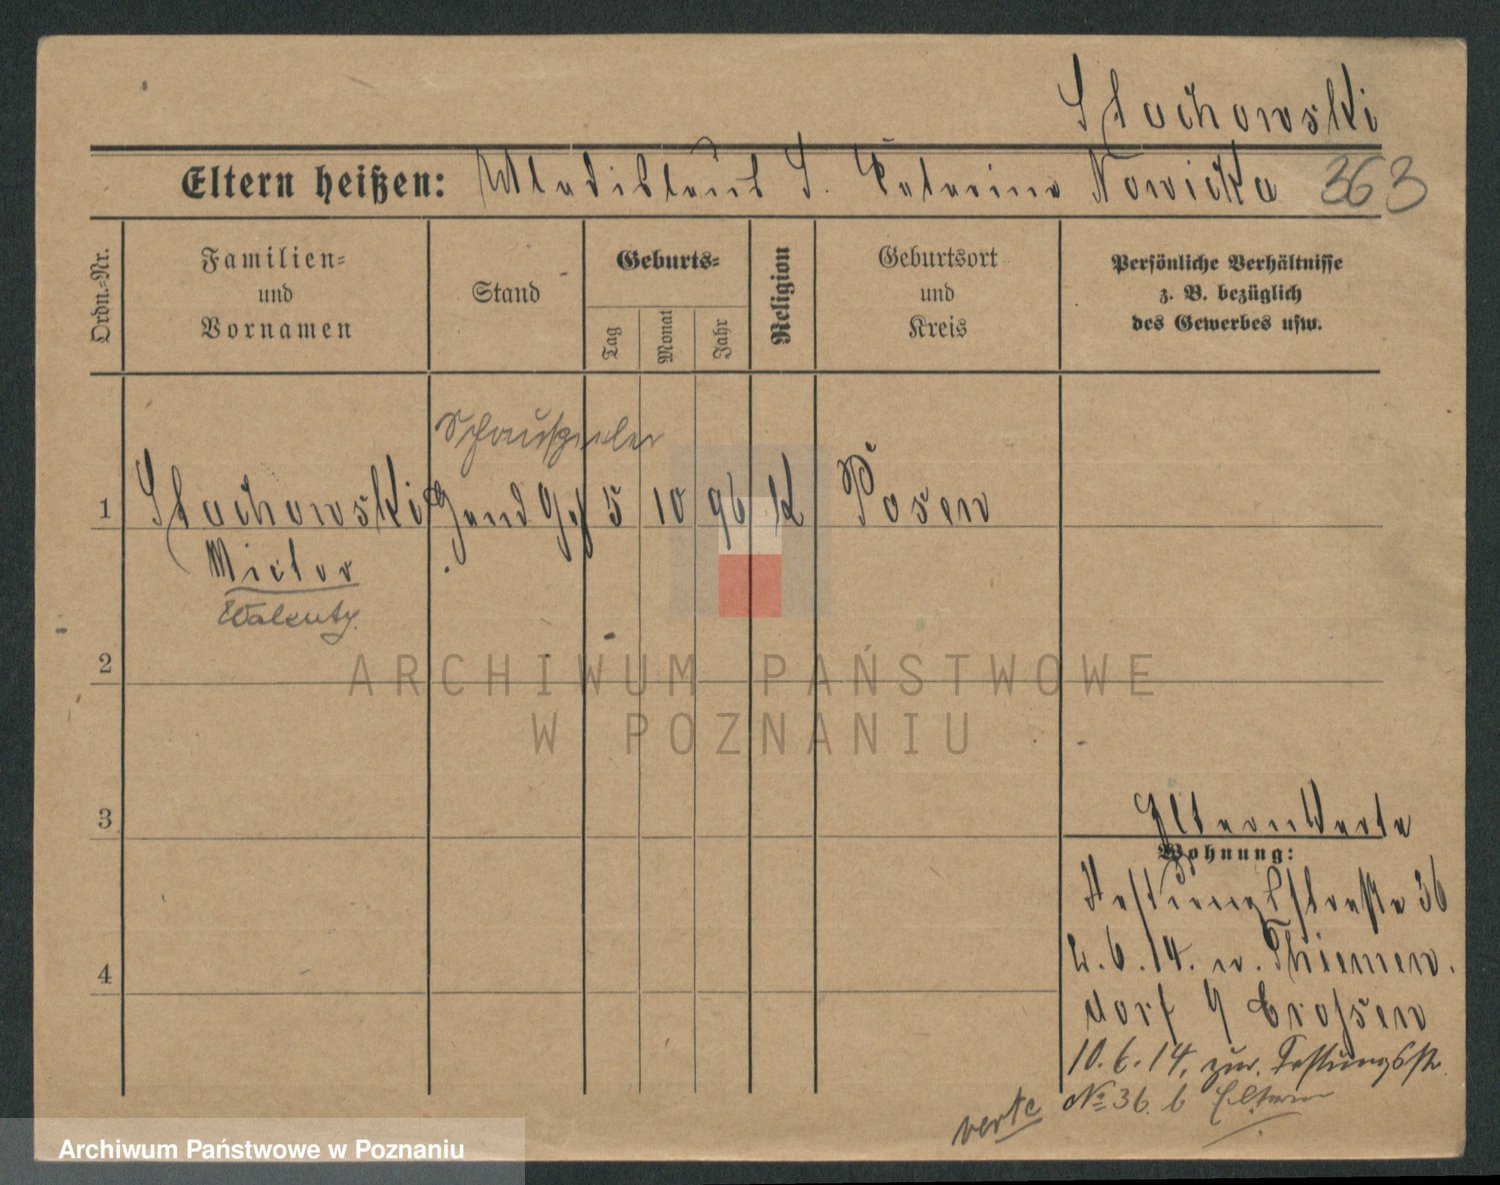 Stachowski
Eltern heißen: Wladislaus S. Katarina Nowicka 363
Ordn.-Nr.
Familien-
und
Vornamen
Stand
Geburts-
Tag
Monat
Jahr
Religion
Geburtsort
und
Kreis
Persönliche Verhältnisse
z. B. bezüglich
des Gewerbes usw.
Schauspieler
1 Stachowski 5 10 96 K Posen
Victor
Walenty
2
ARCHIWUM PAŃSTWOWE
W POZNANIU
3
Elternkarte
Wohnung:
Festungsstraße 36
2.6.14. n. Thiemen.
dorf Crossen
4
10.6.14. zur. Festungsstr.
№ 36 b Eltern
verte
Archiwum Państwowe w Poznaniu